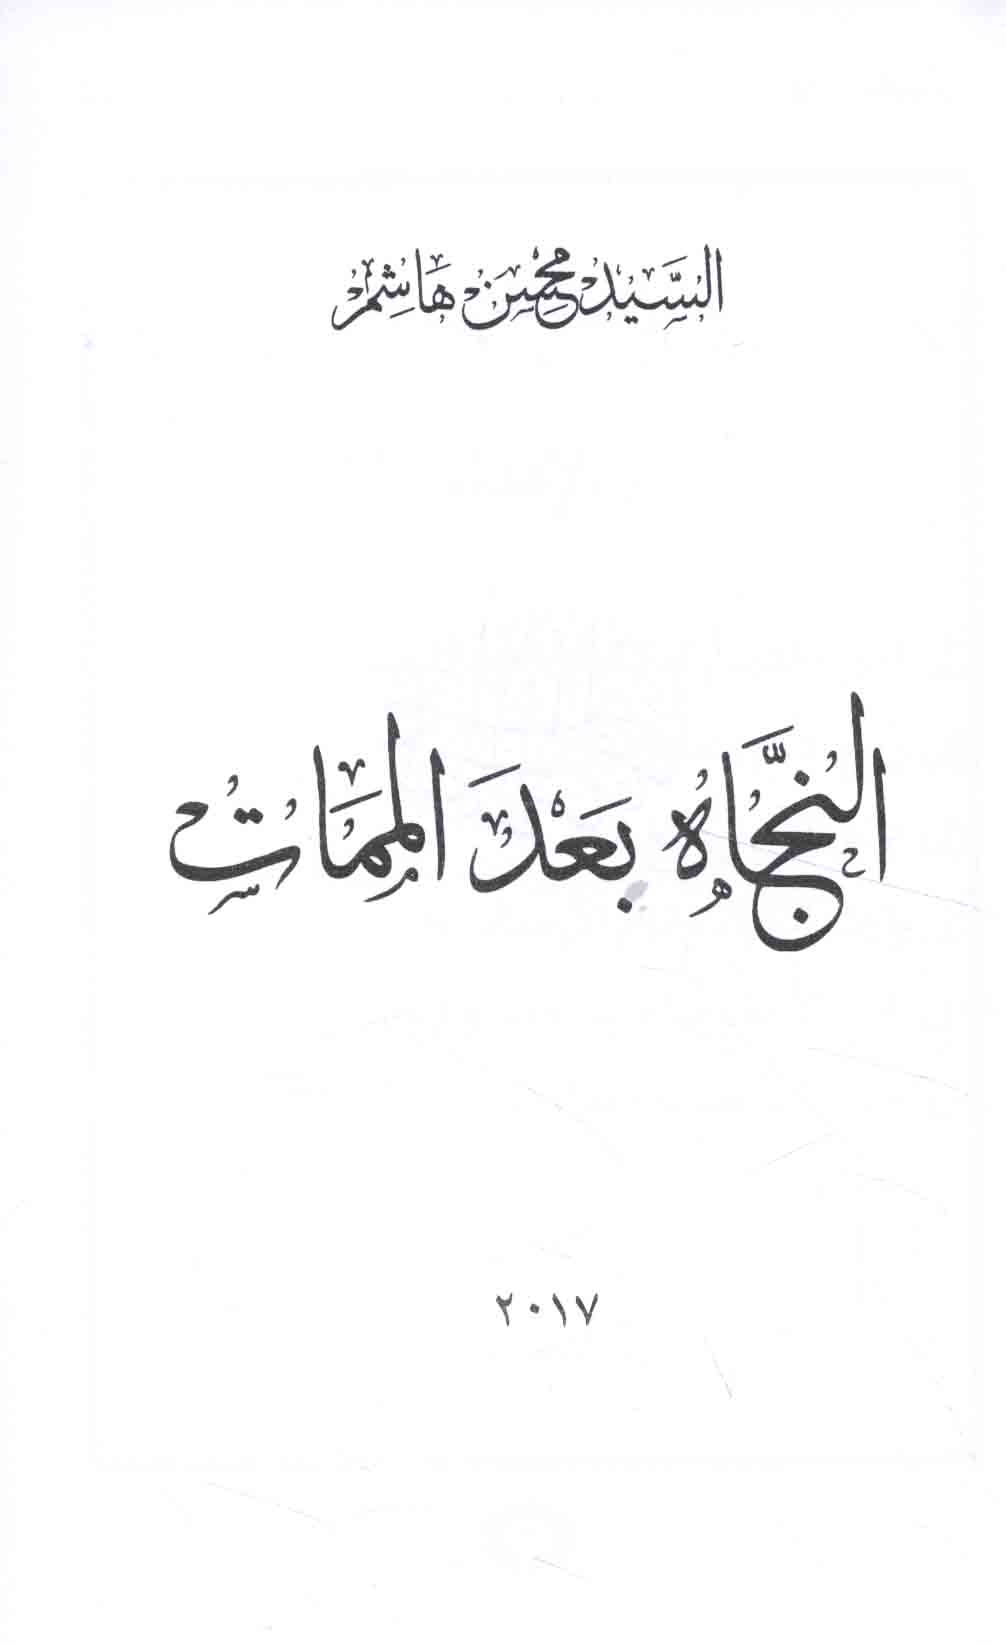 السيد محسن هاشم
النجاه بعد الممات
٢٠١٧